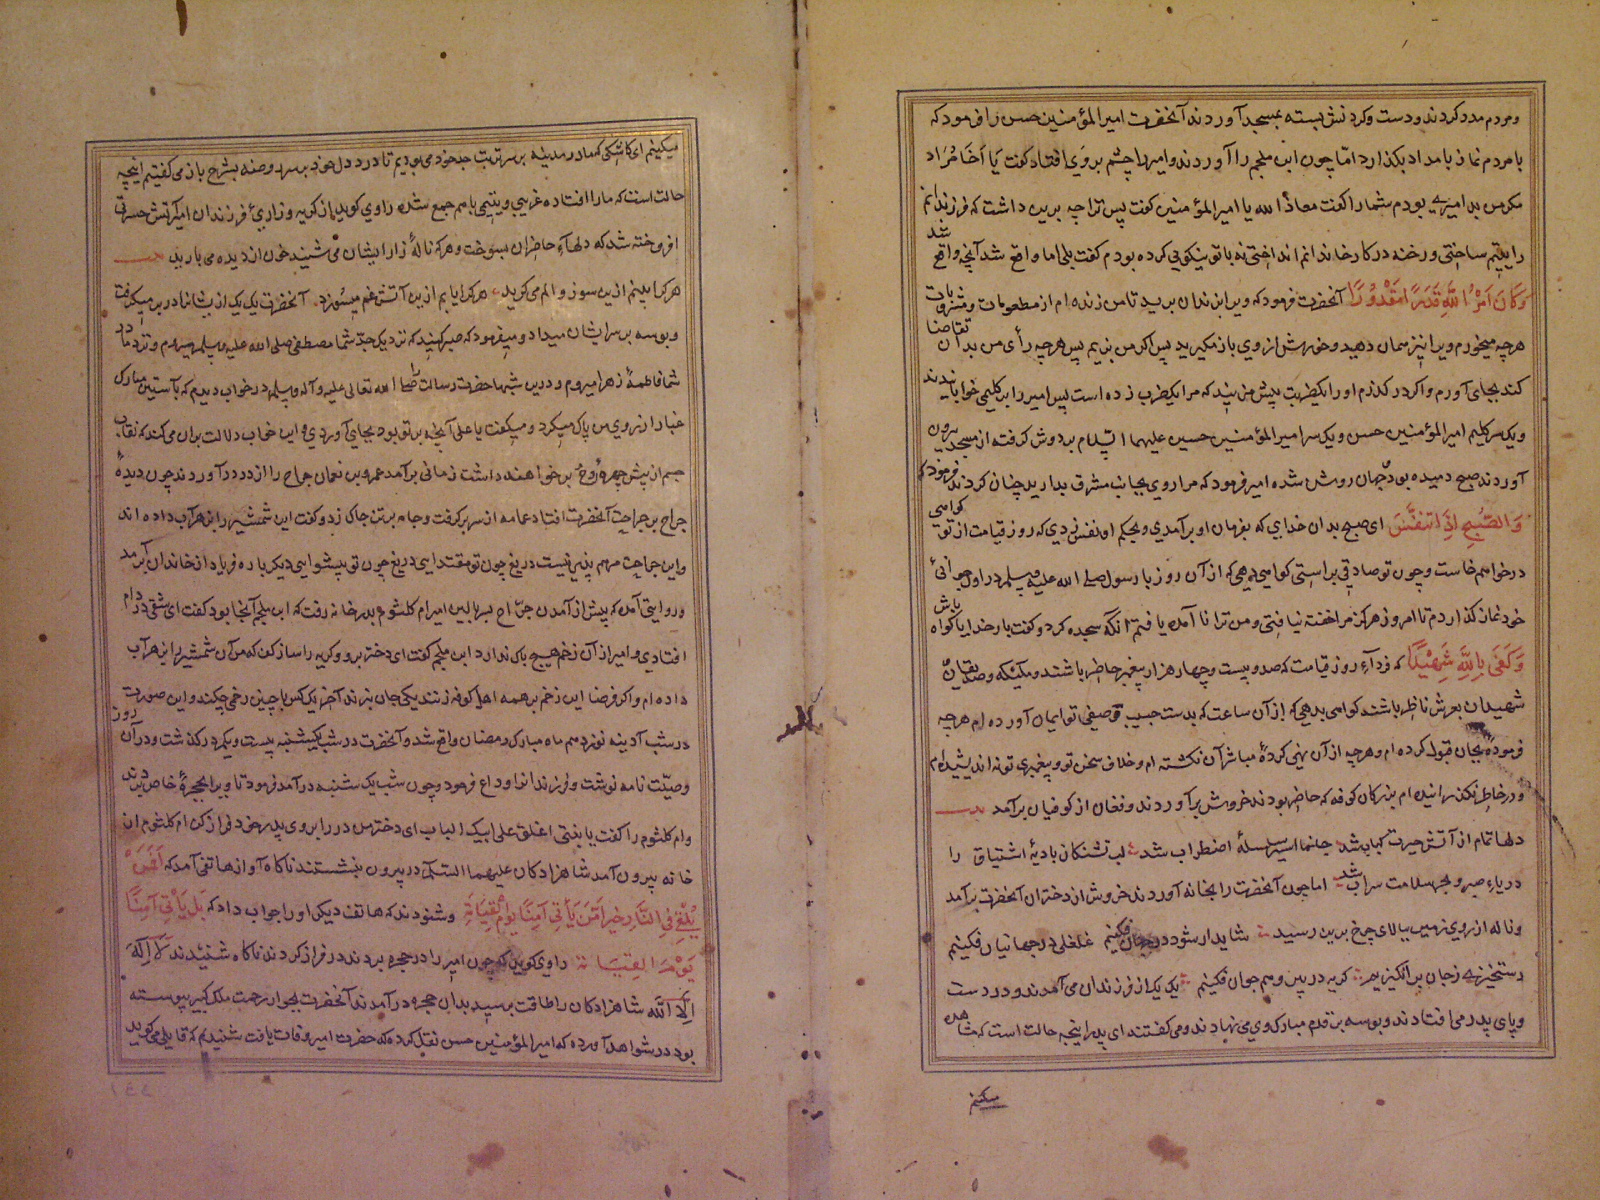 ومردم مدد کردند و دست و کردنش بسته بمسجد آوردند آنحضرت امیرالمؤمنین حسن را فرمود که
با مردم نماز بامداد بکذارد امّا چون ابن ملجم را آوردند و امیر را چشم بروی افتاد کفت یَا اَخَا مُرَاد
مکر من بد امیری بودم شما را کفت معاذ الله یا امیرالمؤمنین کفت پس ترا چه برین داشت که فرزندانم
را یتیم ساختی و رخنه در کار خاندانم انداختی نه با تو نیکویی کرده بودم کفت بلی اما واقع شد آنچه واقع شد
وَکَانَ اَمْرُ اللهِ قَدَرًا مَقْدُورًا آنحضرت فرمود که ویرا بزندان برید تا من زنده ام از مطعومات و مشروبات
هرچه میخورم ویرا نیز همان دهید و خورش از وی باز مکیرید پس اکر من بزیم پس هرچه رأی من بدان تقاضا
کند بجای آورم و اکر درکذرم او را یکضربت بیش مزنید که مرا یکضرب زده است پس امیر را بر کلیمی خوابانیدند
و یکسر کلیم امیرالمؤمنین حسن و یکسر امیرالمؤمنین حسین علیهما السلام بردوش کرفته از مسجد بیرون
آوردند صبح دمیده بود و جهان روشن شده امیر فرمود که مرا روی بجانب مشرق بدارید چنان کردند فرمود که
وَالصُّبْحِ اِذَا تَنَفَّسَ ای صبح بدان خدایی که بفرمان او برآمدی و بحکم او نفس زدی که روز قیامت از تو کواهی
درخواهم خاست و چون تو صادقی براستی کواهی دهی که از آن روز با رسول صلی الله علیه وسلم در اول جوانیٔ
خود نماز کذاردم تا امروز هرکز مرا خفته نیافتی و من ترا نا آمده یافتم آنکه سجده کرد و کفت بار خدایا کواه باش
وَکَفَی بِاللهِ شَهِیْدًا که فردآء روز قیامت که صد و بیست و چهار هزار پیغمبر حاضر باشند و ملئکه و صدیقان
شهیدان بعرش ناظر باشند کواهی بدهی که از آن ساعت که بدست حبیب تو صفی تو ایمان آورده ام هرچه
فرمودهٔ بجان قبول کرده ام و هرچه از آن نهی کردهٔ مباشر آن نکشته ام و خلاف سخن تو و پیغمبری تو نه اندیشیده ام
و در خاطر نکذرانیده ام بزرکان کوفه که حاضر بودند خروش برآوردند و فغان از کوفیان برآمد بیت
دلها تمام از آتش حیرت کباب شد جانها اسیر سلسلهٔ اضطراب شد لب تشنکان بادیهٔ اشتیاق را
دریاء صبر و بحر سلامت سراب شد اما چون آنحضرت را بخانه آوردند خروش از دختران آنحضرت برآمد
و ناله از روی زمین ببالای چرخ برین رسید شاید ار شور در جهان فکنیم غلغلی در جهانیان فکنیم
رستخیزی ز جان برانکیزیم کریه در پیر و هم جوان فکنیم یک یک از فرزندان می آمدند و در دست
و پای پدر می افتادند و بوسه بر قدم مبارک وی می نهادند و می کفتند ای پدر اینچه حالت است که مشاهده
میکنیم
میکنیم ای کاشکی که ما در مدینه بر سر تربت جد خود می بودیم تا درد دل خود بر سر روضه بشرح باز می کفتیم اینچه
حالت است که ما را افتاده غریبی و یتیمی با هم جمع شده راوی کوید از کریه و زاریٔ فرزندان امیر آتش حسرتی
افروخته شد که دلهاء حاضران بسوخت و هر که نالهٔ زار ایشان می شنید خون از دیده می بارید بیت
هر کرا بینم ازین سوز و الم می کرید هر کرا یابم ازین آتش غم میسوزد آنحضرت یک یک از یشانرا در بر میکرفت
و بوسه بر سر ایشان میداد و میفرمود که صبر کنید که نزدیک جدّ شما مصطفی صلی الله علیه وسلم میروم و نزد مادر
شما فاطمهٔ زهرا میروم و درین شبها حضرت رسالت را صلی الله تعالی علیه وآله وسلم در خواب دیدم که بآستین مبارک
غبار از روی من پاک میکرد و میکفت یا علی آنچه بر تو بود بجای آوردی و این خواب دلالت بران می کند که نقاب
جسم از پیش چهرهٔ روح بر خواهند داشت زمانی برآمد عمرو بن نعمان جراح را از در درآوردند چون دیدهٔ
جراح بر جراحت آنحضرت افتاد عمامه از سر برکرفت و جامه بر تن چاک زد و کفت این شمشیر را بزهر آب داده اند
و این جراحت مرهم پذیر نیست دریغ چون تو مقتدایی دریغ چون تو پیشوایی دیکر باره فریاد از خاندان برآمد
و روایتی آمد که پیش از آمدن جرّاح بسر بالین امیر ام کلثوم بدر خانه رفت که ابن ملجم آنجا بود کفت ای شقی در دام
افتادی و امیر از آن زخم هیچ باک ندارد ابن ملجم کفت ای دختر برو و کریه را ساز کن که من آن شمشیر را بزهر آب
داده ام و اکر فرضا این زخم بر همه اهل کوفه زنند یکی جان نبرند آخر یک کس با چنین زخمی چکند و این صورت
در شب آدینه نوزدهم ماه مبارک رمضان واقع شد و آنحضرت در شب یکشنبه بیست و یکم درکذشت و در آن روز
وصیّت نامه نوشت و فرزندانرا وداع فرمود و چون شب یک شنبه درآمد فرمود تا ویرا بحجرهٔ خاص بردند
و ام کلثوم را کفت یا بنتی اغلق علی ابیک الباب ای دختر من در را بروی پدر خود فراز کن ام کلثوم از
خانه بیرون آمد شاهزادکان علیهما السلام در بیرون بنشستند ناکاه آواز هاتفی آمد که اَفَمَنْ
یُلْقَی فِی النَّارِ خَیْرٌ اَمَّنْ یَأتِی آمِنًا یَوْمَ الْقِیَامَةِ و شنودند که هاتف دیکر او را جواب داد که بَلْ یَأتِی آمِنًا
یَوْمَ الْقِیَامَةِ راوی کوید که چون امیر را در حجره بردند در فراز کردند ناکاه شنیدند لَا اِلٰهَ
اِلَّا اللهُ شاهزادکان را طاقت برسید بدان حجره درآمدند آنحضرت بجوار رحمت ملک کبیر پیوسته
بود در شواهد آورده که امیرالمؤمنین حسن نقل کرده که حضرت امیر وفات یافت شنیدیم که قایلی می کوید